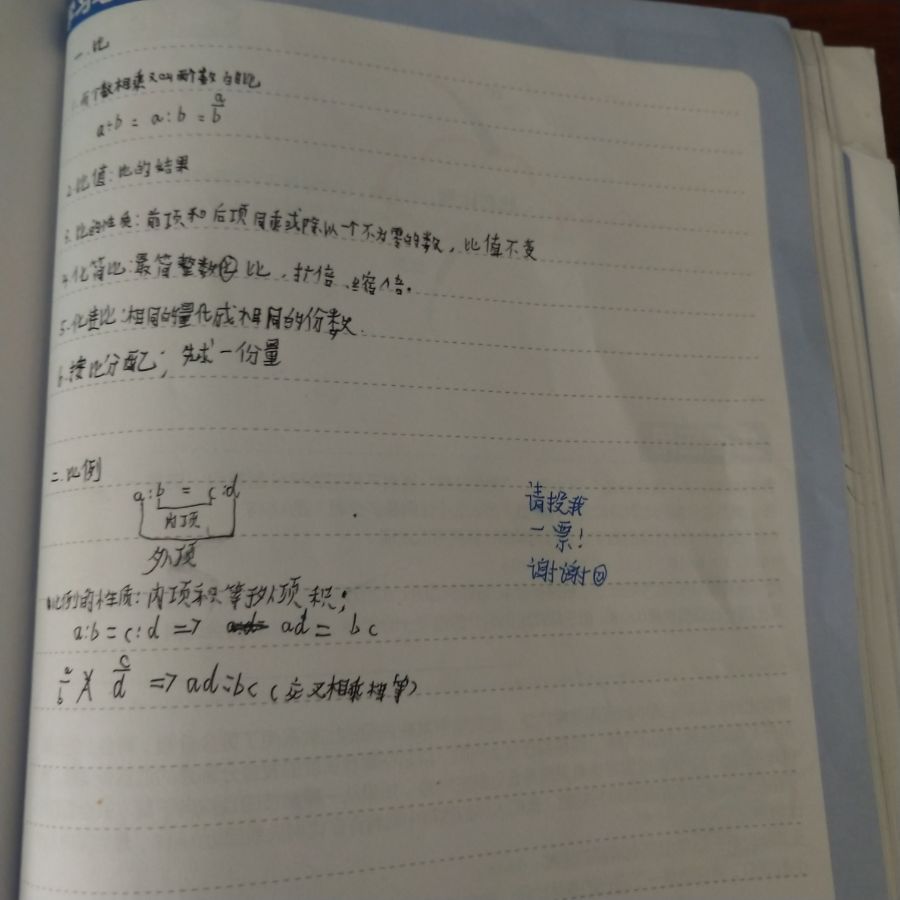 学习
一.比
1.两个数相乘又叫两个数的比
a÷b = a:b = a/b
2.比值:比的结果
3.比的性质:前项和后项同乘或除以一个不为零的数,比值不变
4.化简比:最简整数比,扩倍、缩小倍。
5.化连比:相同的量化成相同的份数.
6.按比分配;先求一份量
二.比例
a:b = c:d
内项
外项
比例的性质:内项积等于外项积;
a:b=c:d => ad = bc
a/b X c/d => ad=bc(交叉相乘相等)
请投我
一票!
谢谢☺